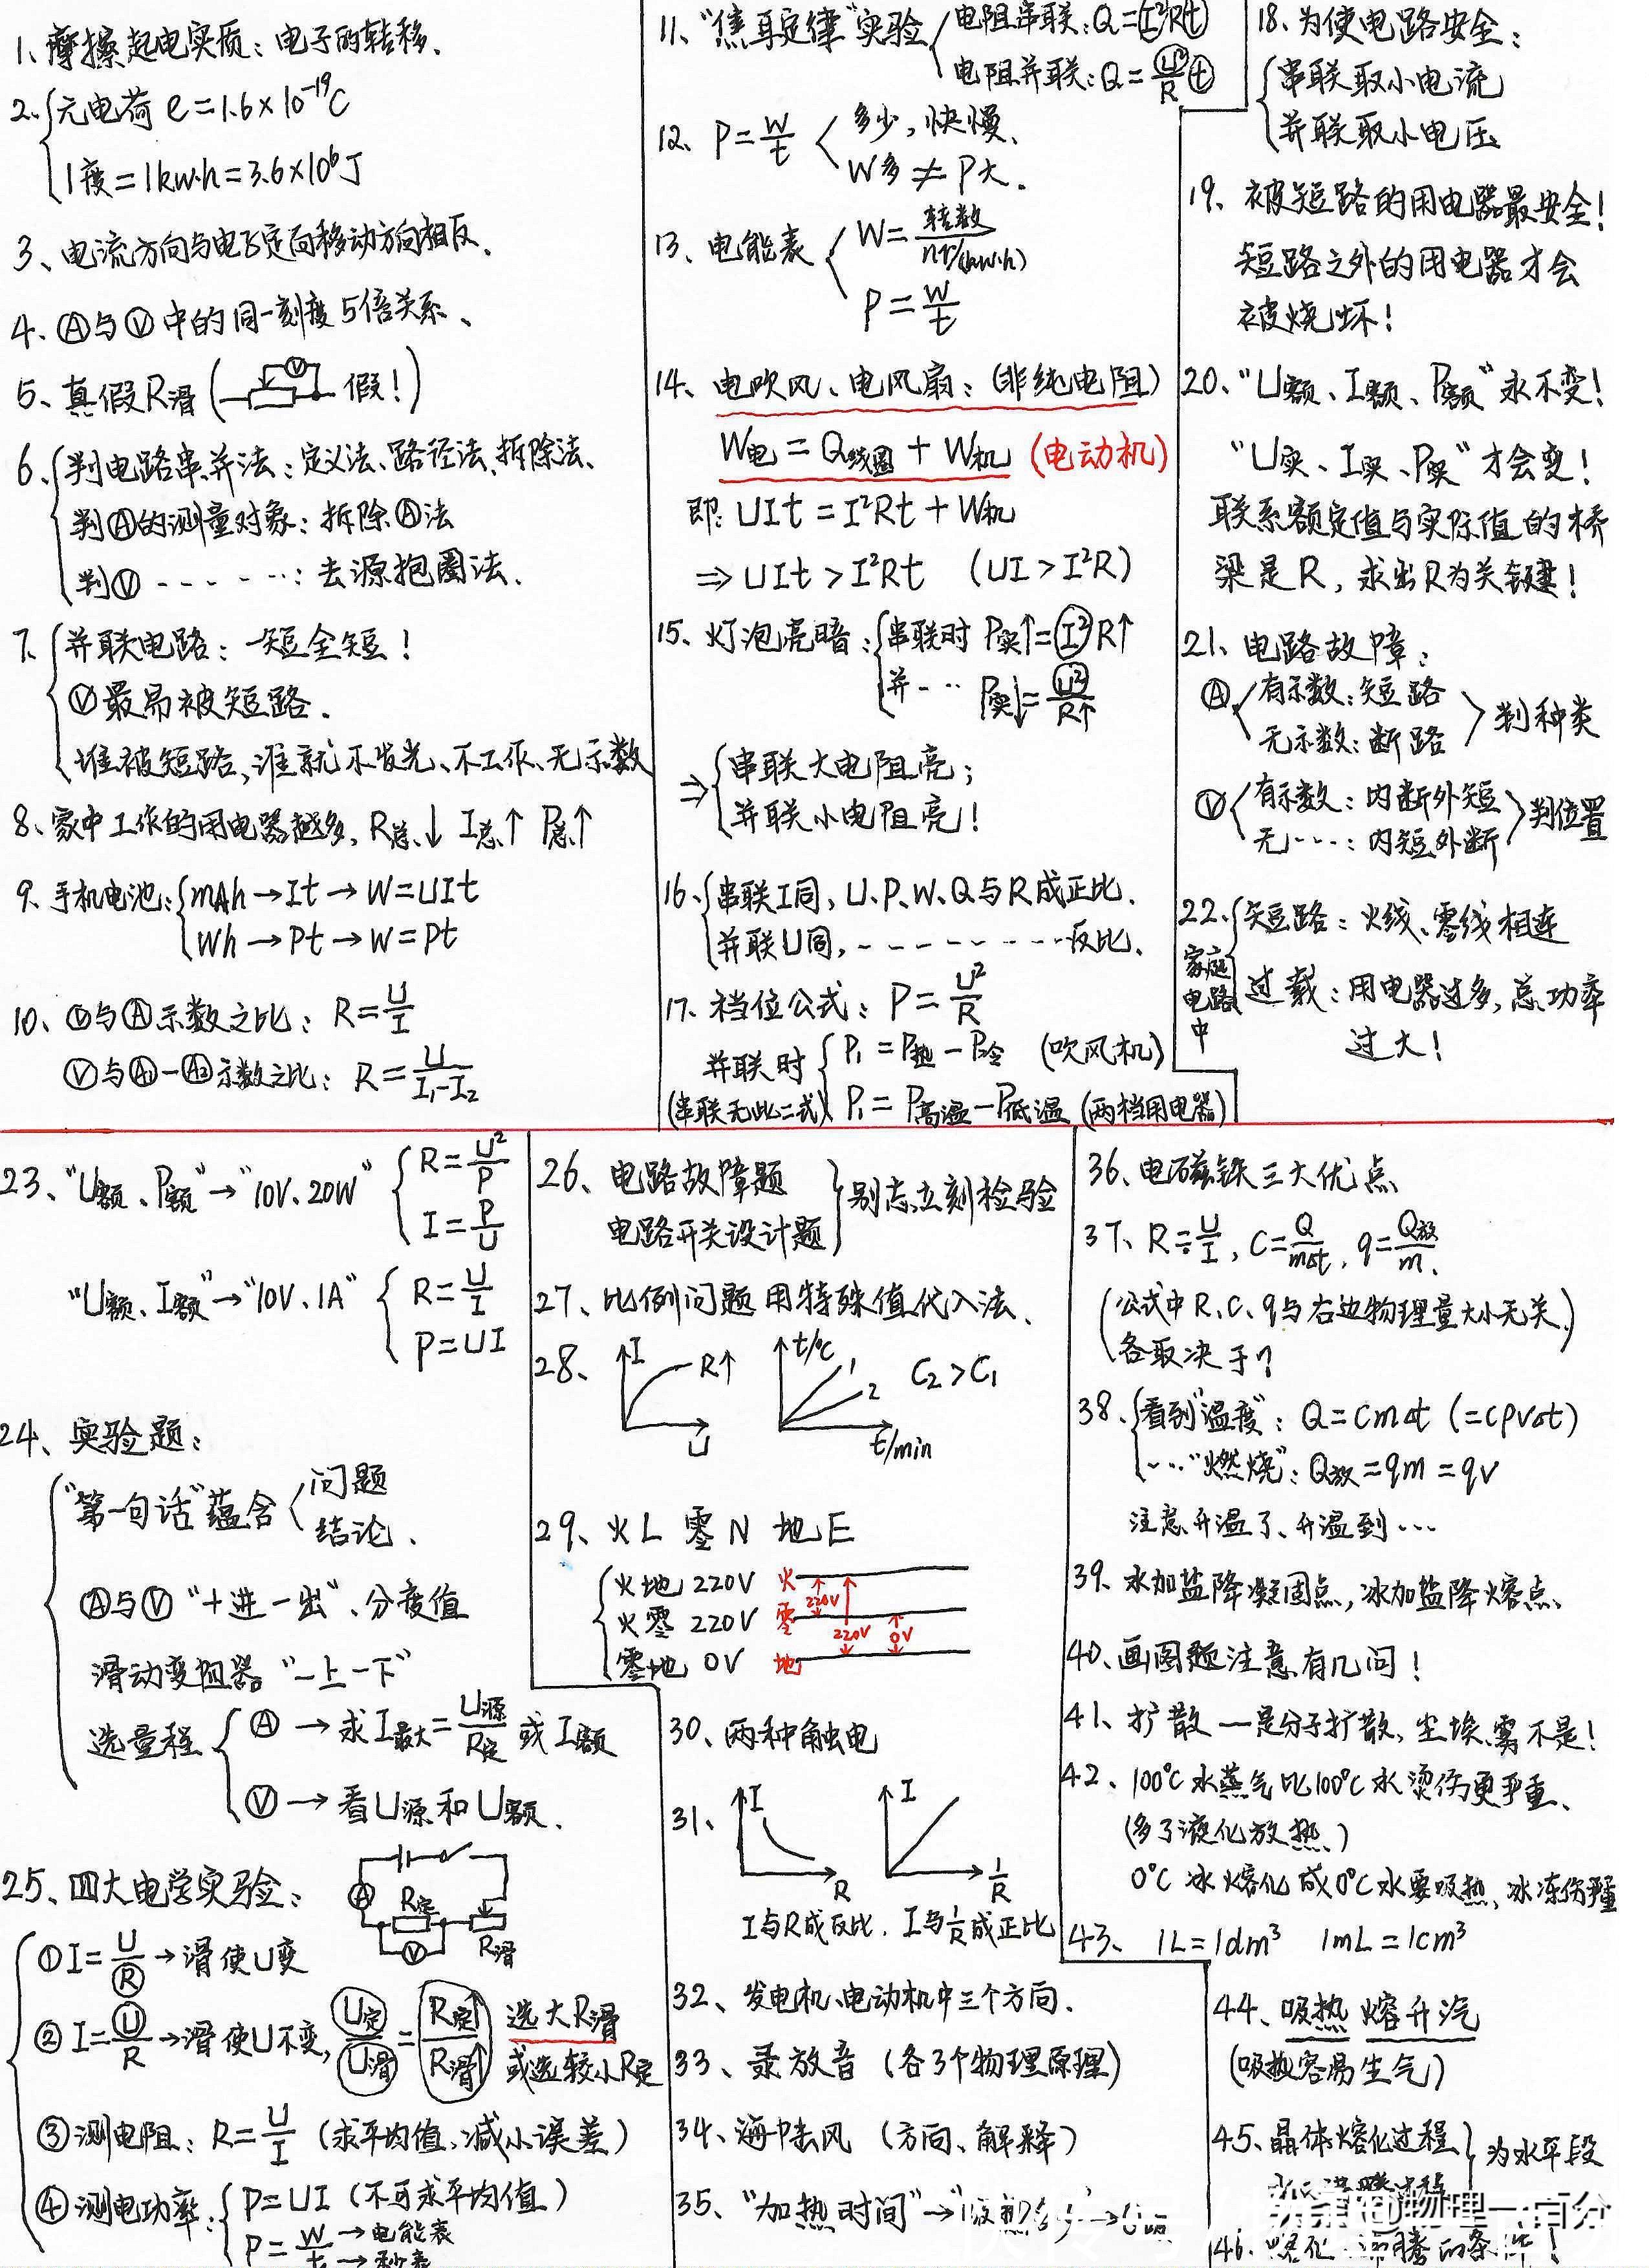 1、摩擦起电实质：电子的转移、
2、元电荷 e=1.6×10⁻¹⁹C
1度=1kw·h=3.6×10⁶J
3、电流方向与电子定向移动方向相反、
4、Ⓐ与Ⓥ中的同一刻度5倍关系、
5、真假R滑（Ⓥ 假！）
6、判电路串、并法：定义法、路径法、拆除法、
判Ⓐ的测量对象：拆除Ⓐ法
判Ⓥ - - - - - -：去源抱圈法、
7、并联电路：一短全短！
Ⓥ最易被短路.
谁被短路，谁就不发光、不工作、无示数
8、家中工作的用电器越多，R总↓ I总↑ P总↑
9、手机电池：mAh→It→W=UIt
Wh→Pt→W=Pt
10、Ⓥ与Ⓐ示数之比：R=U/I
Ⓥ与Ⓐ₁-Ⓐ₂示数之比：R=U/(I₁-I₂)
11、“焦耳定律”实验 电阻串联：Q=I²Rt
电阻并联：Q=U²/R t
12、P=W/t 多少，快慢、
W多≠P大.
13、电能表 W=转数/nr/(kw·h)
P=W/t
14、电吹风、电风扇：（非纯电阻）
W电=Q线圈+W机（电动机）
即：UIt=I²Rt+W机
⇒UIt>I²Rt （UI>I²R）
15、灯泡亮暗：串联时 P实↑=I²R↑
并-- P实↓=U²/R↑
⇒串联大电阻亮；
并联小电阻亮！
16、串联I同，U、P、W、Q与R成正比.
并联U同，- - - - - - - - -反比、
17、档位公式：P=U²/R
并联时 P₁=P热-P冷 （吹风机）
（串联无此二式）P₁=P高温-P低温（两档用电器）
18、为使电路安全：
串联取小电流
并联取小电压
19、被短路的用电器最安全！
短路之外的用电器才会
被烧坏！
20、“U额、I额、P额”永不变！
“U实、I实、P实”才会变！
联系额定值与实际值的桥
梁是R，求出R为关键！
21、电路故障：
Ⓐ 有示数：短路
无示数：断路 判种类
Ⓥ 有示数：内断外短
无----：内短外断 判位置
22、家庭电路中 短路：火线、零线相连
过载：用电器过多，总功率
过大！
23、“U额、P额”→“10V、20W” R=U²/P
I=P/U
“U额、I额”→“10V、1A” R=U/I
P=UI
24、实验题：
“第一句话”蕴含 问题
结论、
Ⓐ与Ⓥ“+进-出”、分度值
滑动变阻器“一上一下”
选量程 Ⓐ→求I最大=U源/R定 或I额
Ⓥ→看U源和U额.
25、四大电学实验：
Ⓐ R定 Ⓥ R滑
①I=U/R→滑使U变
②I=U/R→滑使U不变，U定/U滑=R定↑/R滑↑ 选大R滑
或选较小R定
③测电阻：R=U/I（求平均值，减小误差）
④测电功率：P=UI（不可求平均值）
P=W/t →电能表
→秒表
26、电路故障题
电路开关设计题 别忘立刻检验
27、比例问题用特殊值代入法、
28、I R↑ U t/℃ 1 2 t/min C₂>C₁
29、火L 零N 地E
火地 220V 火
220V
火零 220V 零
220V 0V
零地 0V 地
30、两种触电
31、I R I 1/R
I与R成反比. I与1/R成正比
32、发电机、电动机中三个方向.
33、录放音（各3个物理原理）
34、海陆风（方向、解释）
35、“加热时间”→“吸热多少”→
36、电磁铁三大优点
37、R=U/I，C=Q/mΔt，q=Q放/m、
（公式中R、C、q与右边物理量大小无关、
各取决于？）
38、看到“温度”：Q=CmΔt（=CρVΔt）
---“燃烧”：Q放=qm=qV
注意升温了、升温到…
39、水加盐降凝固点，冰加盐降熔点、
40、画图题注意有几问！
41、扩散一是分子扩散，尘埃、雾不是！
42、100℃水蒸气比100℃水烫伤更严重、
（多了液化放热、）
0℃冰熔化成0℃水要吸热，冰冻伤严重
43、1L=1dm³ 1mL=1cm³
44、吸热 熔升汽
（吸热容易生气）
45、晶体熔化过程 为水平段
46、熔化 沸腾的条件！
物理一百分